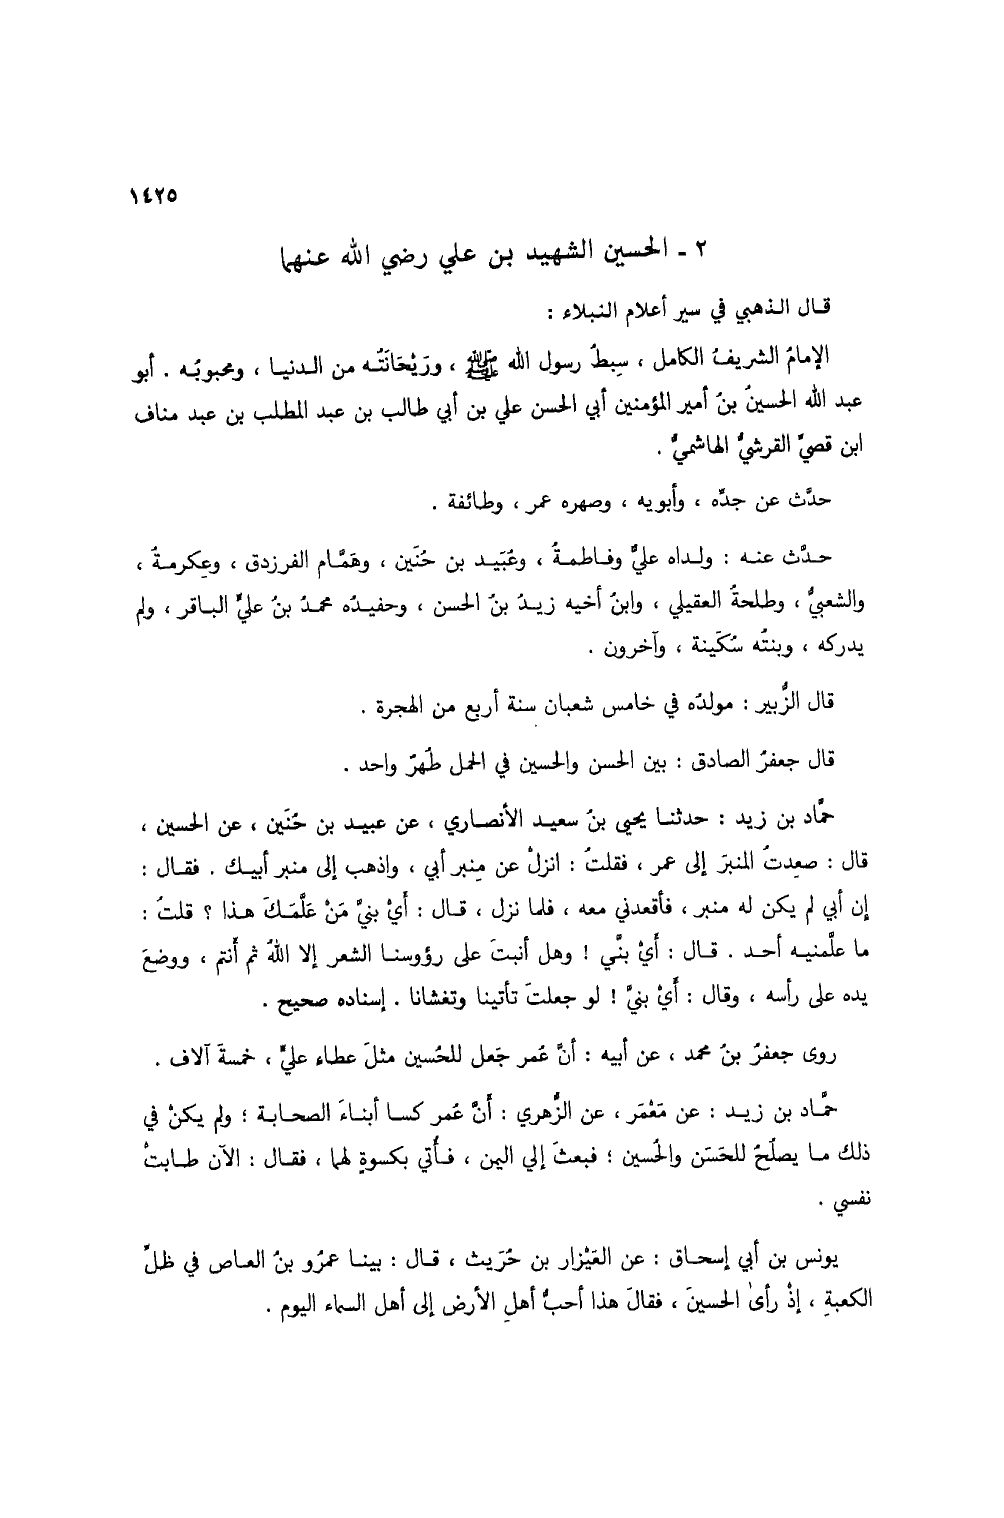 ١٤٢٥
٢ - الحسين الشهيد بن علي رضي الله عنهما
قال الذهبي في سير أعلام النبلاء :
الإمامُ الشريفُ الكامل ، سِبطُ رسول الله ﷺ ، ورَيْحَانَتُه من الدنيا ، ومحبوبُه . أبو
عبد الله الحسينُ بنُ أمير المؤمنين أبي الحسن علي بن أبي طالب بن عبد المطلب بن عبد مناف
ابن قصيٍّ القرشيُّ الهاشميُّ .
حدَّث عن جدِّه ، وأبويه ، وصهره عمر ، وطائفة .
حدَّث عنه : ولداه عليٌّ وفاطمةُ ، وعُبَيد بن حُنَين ، وهَمَّام الفرزدق ، وعِكرمةُ ،
والشعبيُّ ، وطلحةُ العقيلي ، وابنُ أخيه زيدُ بنُ الحسن ، وحفيدُه محمدُ بنُ عليٍّ الباقر ، ولم
يدركه ، وبنتُه سُكَينة ، وآخرون .
قال الزُّبير : مولدُه في خامس شعبان سنة أربع من الهجرة .
قال جعفرٌ الصادق : بين الحسن والحسين في الحمل طُهرٌ واحد .
حمَّاد بن زيد : حدثنا يحيى بنُ سعيد الأنصاري ، عن عبيد بن حُنَين ، عن الحسين ،
قال : صعِدتُ المنبرَ إلى عمر ، فقلتُ : انزلْ عن مِنبر أبي ، واذهب إلى منبر أبيك . فقال :
إن أبي لم يكن له منبر ، فأقعدني معه ، فلما نزل ، قال : أَيْ بنيَّ مَنْ عَلَّمَكَ هذا ؟ قلتُ :
ما علَّمنيه أحد . قال : أَيْ بنَّي ! وهل أنبتَ على رؤوسنا الشعر إلا اللهُ ثم أَنتم ، ووضعَ
يده على رأسه ، وقال : أَيْ بنيَّ ! لو جعلتَ تأتينا وتغشانا . إسناده صحيح .
روى جعفرُ بنُ محمد ، عن أبيه : أنَّ عُمر جَعل للحُسين مثلَ عطاء عليٍّ ، خمسةَ آلاف .
حمَّاد بن زيد : عن مَعْمَر ، عن الزُّهري : أَنَّ عُمر كسا أبناءَ الصحابة ؛ ولم يكنْ في
ذلك ما يصلُحُ للحَسَن والحُسين ؛ فبعثَ إلي اليمن ، فأُتي بكسوةٍ لهما ، فقال : الآن طابتْ
نفسي .
يونس بن أبي إسحاق : عن العَيْزار بن حُرَيث ، قال : بينا عمرُو بنُ العاص في ظلِّ
الكعبةِ ، إذْ رأى الحسينَ ، فقالَ هذا أحبُّ أهلِ الأرض إلى أهل السماء اليوم .